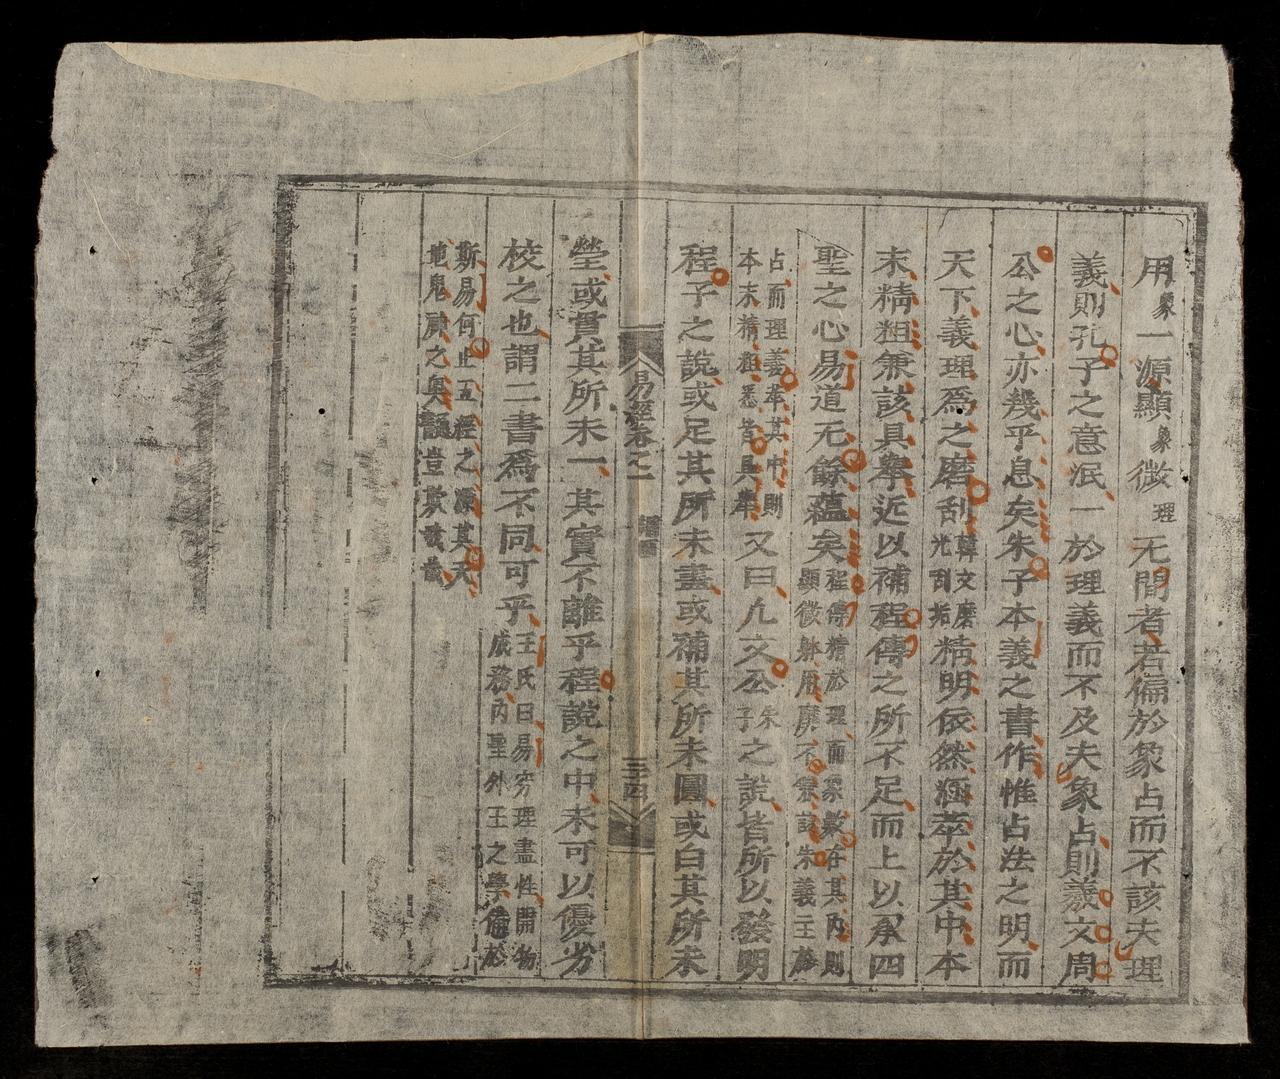 用象一源顯象微理无間者若偏於象占而不該夫理
義則孔子之意泯一於理義而不及夫象占則羲文周
公之心亦幾乎息矣朱子本義之書作惟占法之明而
天下義理爲之磨刮韓文磨光刮垢精明依然涵萃於其中本
末精粗兼該具舉近以補程傳之所不足而上以承四
聖之心易道无餘蘊矣程傳精於理而象數在其內則顯微體用靡不兼該朱義主於
占而理義萃其中則本末精粗悉皆具舉又曰凡文公朱子之說皆所以發明
程子之說或足其所未盡或補其所未圓或白其所未
易經卷之一
三四
瑩或貫其所未一其實不離乎程說之中未可以優劣
校之也謂二書爲不同可乎王氏曰易穷理盡性開物成務內聖外王之學備於
斯易何止五經之源其天地鬼神之奥豈